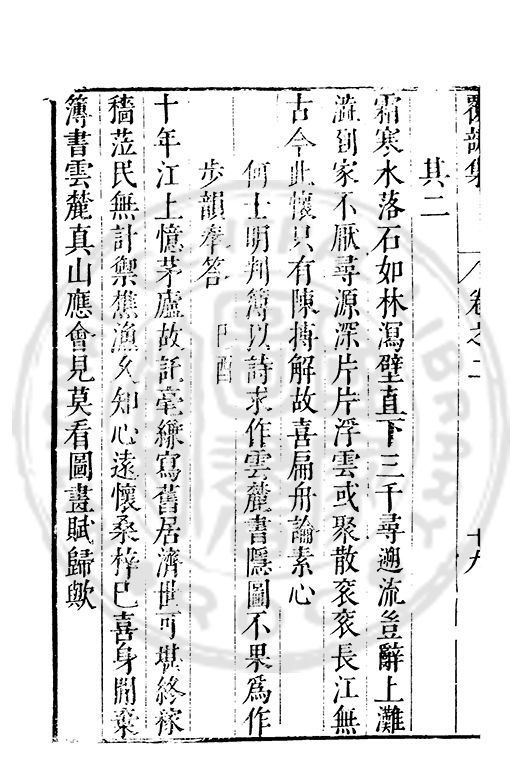 覆瓿集 卷之二 十九
其二
霜寒水落石如林瀉壁直下三千尋遡流豈辭上灘
澁到家不厭尋源深片片浮雲或聚散衮衮長江無
古今此懷只有陳摶解故喜扁舟論素心
何士明判簿以詩求作雲麓書隱圖不果爲作
步韻奉答 己酉
十年江上憶茅廬故託毫縑寫舊居濟世可堪終稼
穡蒞民無計禦樵漁久知心遠懷桑梓已喜身閒棄
簿書雲麓真山應會見莫看圖畫賦歸歟